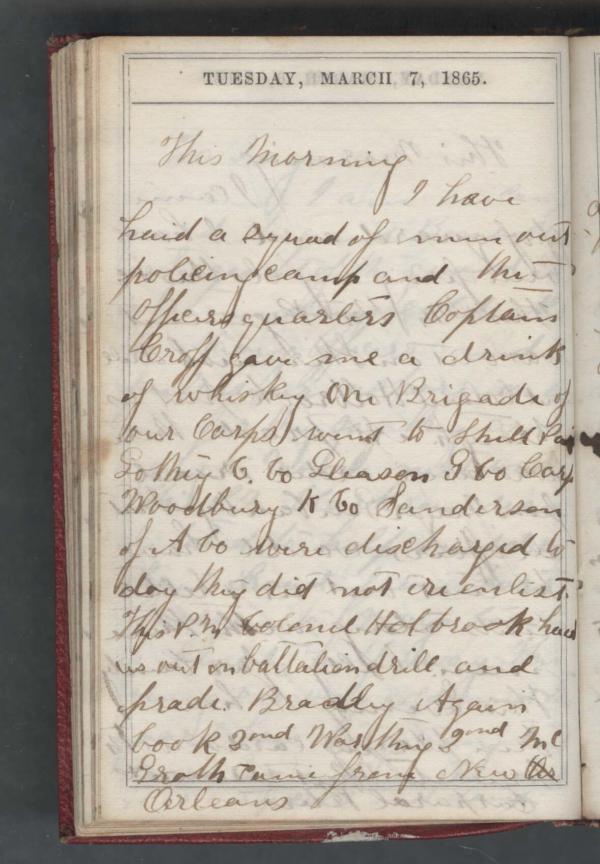 TUESDAY, MARCH 7, 1865.
This Morning
I have
haid a squad of men out
policing camp and thir
Officers quarters Coptain
Croff gave me a drink
of whiskey One Brigade of
our Corps went to Shell
C. Co Gleason I Co Corp
Woodbury K Co Sanderson
of A Co were discharged to
day they did not reenlist.
This P.M Colonel Holbrook haid
us out on battalion drill and
prade. Bradley Again
book 2nd 2nd
came from New Or
Orleans